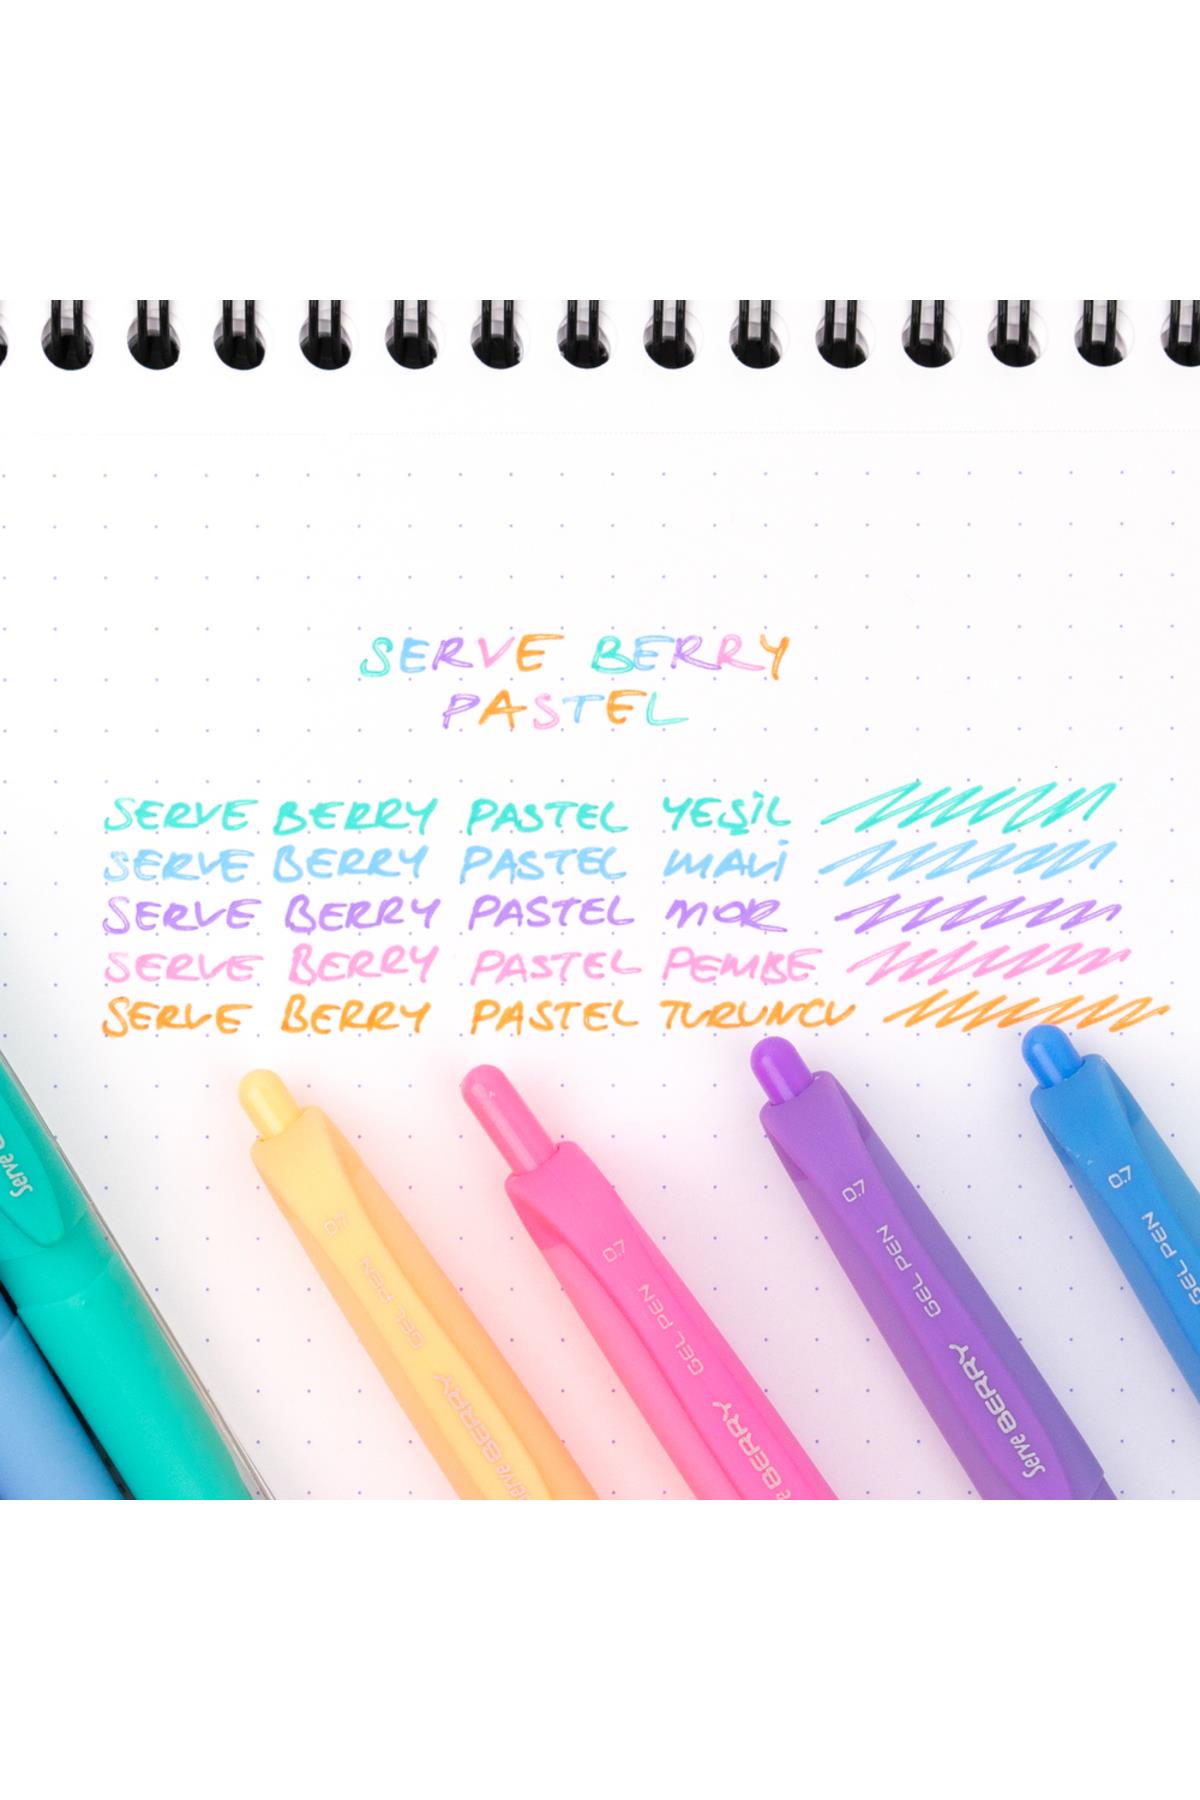 SERVE BERRY
PASTEL
SERVE BERRY PASTEL YEŞİL
SERVE BERRY PASTEL MAVİ
SERVE BERRY PASTEL MOR
SERVE BERRY PASTEL PEMBE
SERVE BERRY PASTEL TURUNCU
Serve
0.7 GEL PEN Serve BERRY
0.7 GEL PEN Serve BERRY
0.7 GEL PEN Serve BERRY
0.7 GEL PEN